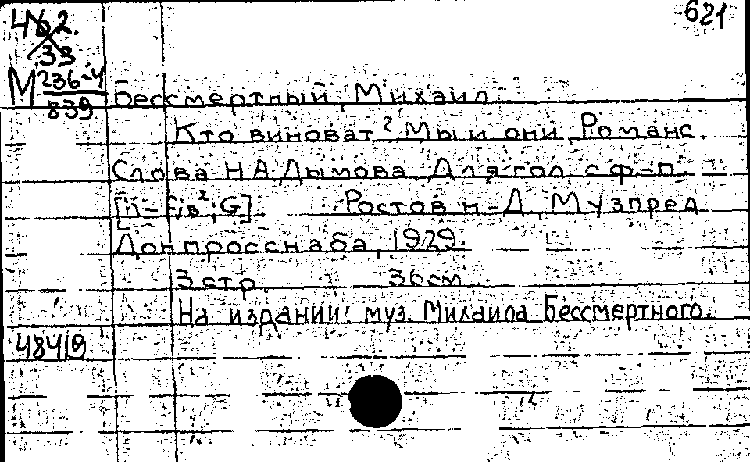 621
462.
33
М 236-4
839
Бессмертный, Михаил.
Кто виноват? Мы и они. Романс.
Слова Н А Дымова. Для гол с ф-п.
Ростов н-Д, Музпред
Донпросснаба, 1929.
3 стр. 36см.
На издании: муз. Михаила Бессмертного.
48419